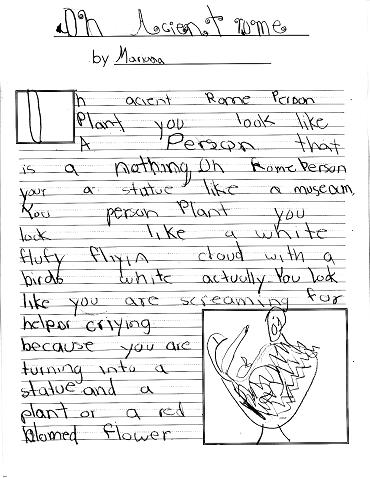 Oh Acient rome
by Mariana
Oh acient Rome Person
Plant you look like
A Person that
is a nothing, Oh Rome Person
your a statue like a museam
You person Plant you
look like a white
flufy fliyin cloud with a
birds white actually. You look
like you are screaming for
helpor criying
because you are
turning into a
statue and a
plant or a red
blomed flower.